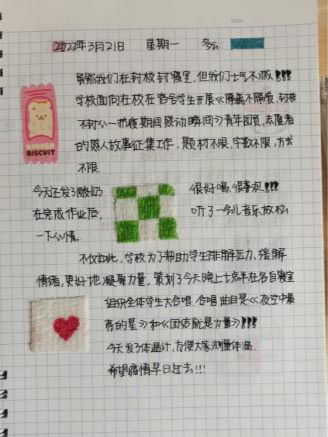 2022年3月21日 星期一 多云
虽然我们在封校封寝室,但我们士气不减!!!
学校面向在校在宿舍学生开展《隔离不隔爱,封校
不封心—抗疫期间感动瞬间》青年团员,志愿者
的感人故事征集工作,题材不限,字数不限,方式
不限.
今天还发了酸奶 很好喝,很喜欢!!!
在完成作业后, 听了一会儿音乐,放松
一下心情.
不仅如此,学校为了帮助学生排解压力,缓解
情绪,更好地凝聚力量,策划了今天晚上七点半在各自寝室
组织全体学生大合唱.合唱曲目是《夜空中最
亮的星》和《团结就是力量》!!!
今天发了体温计,方便大家测量体温.
希望疫情早日过去!!!
BISCUIT